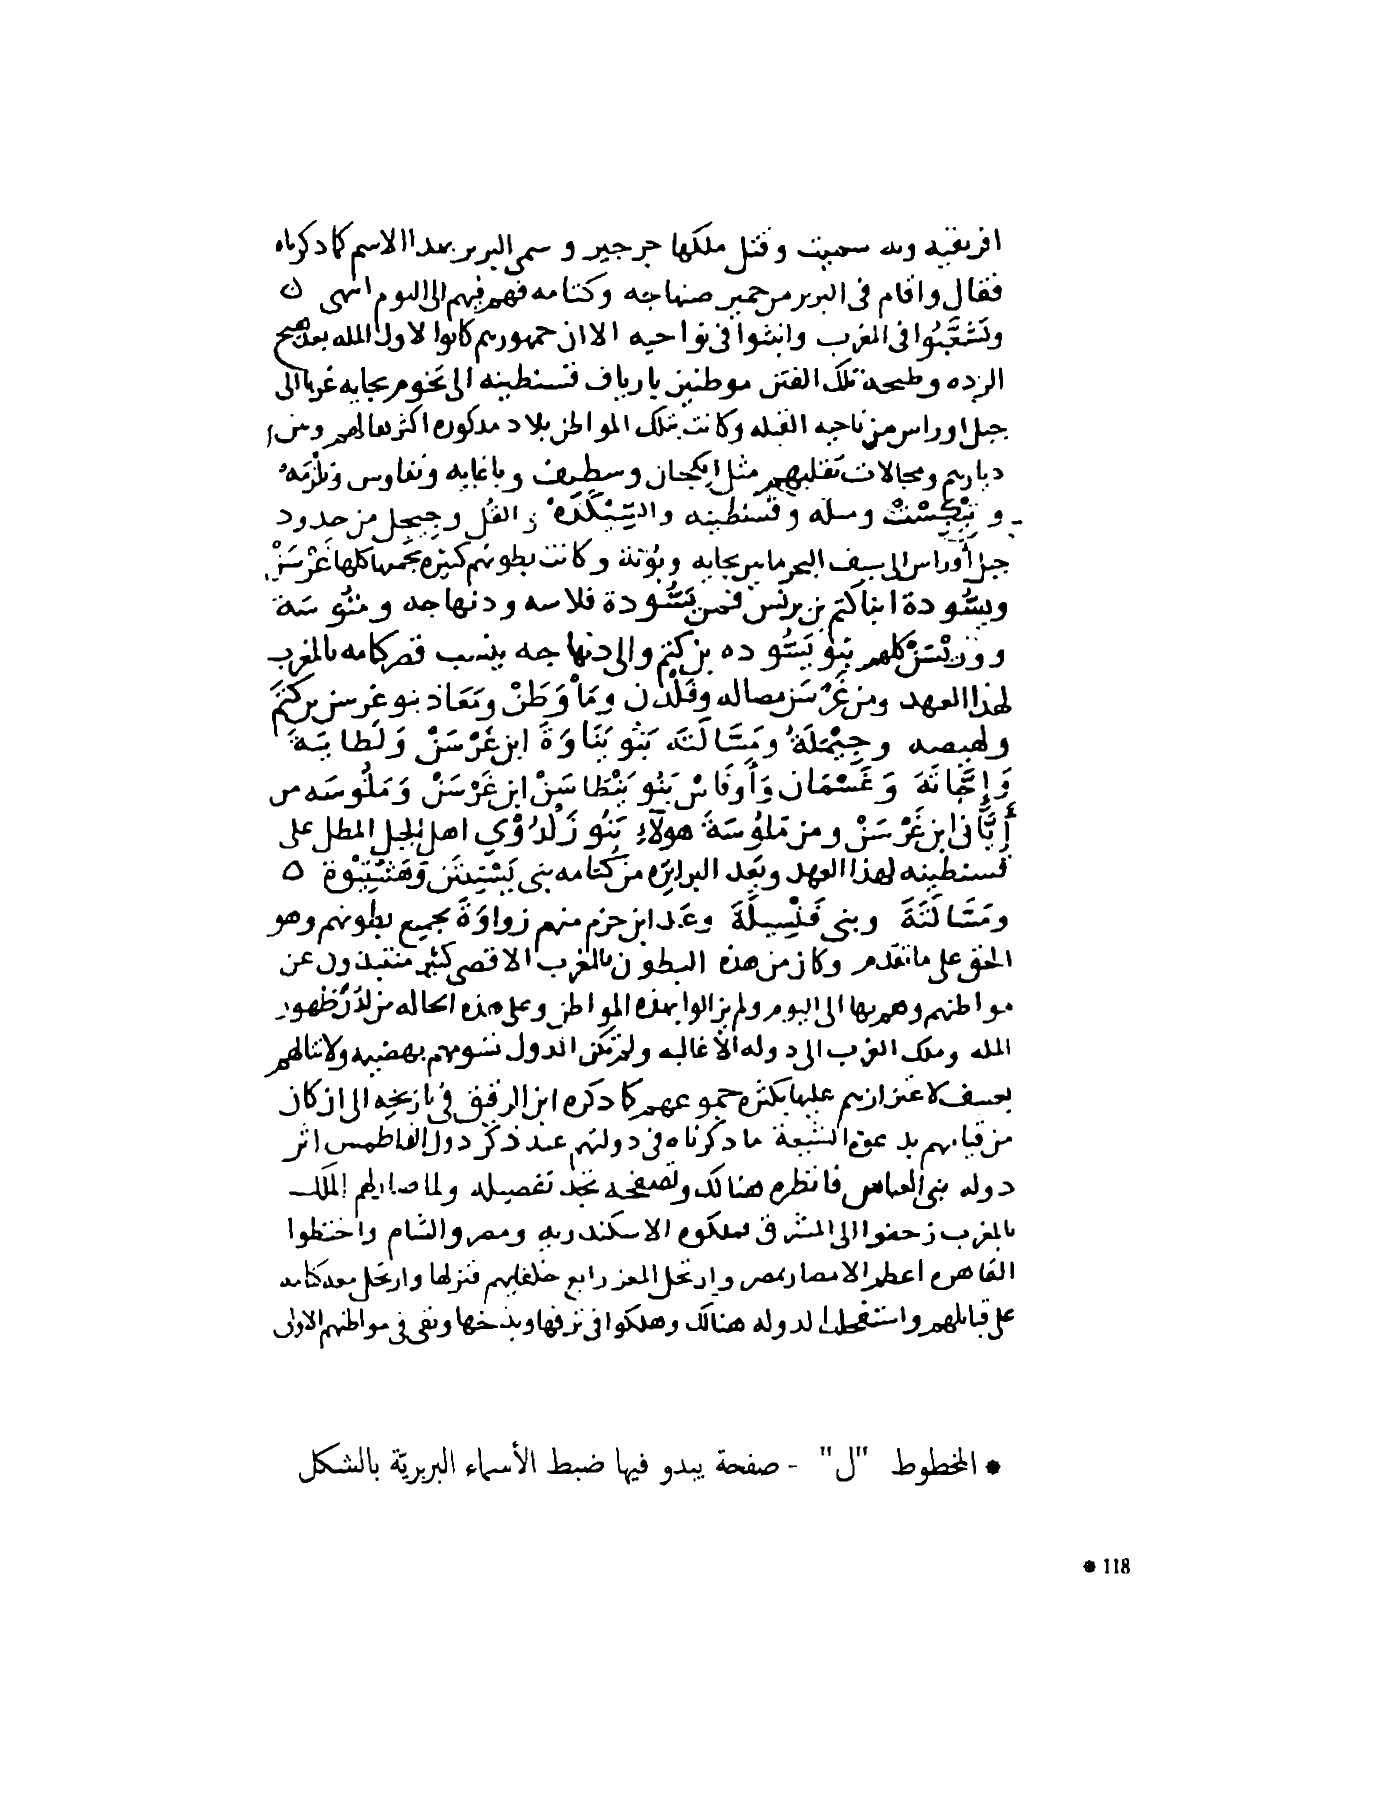 افريقية وبه سميت وقتل ملكها جرجير وسمى البربر بهذا الاسم كما ذكرناه
فقال واقام فى البربر من حمير صنهاجه وكتامه فهم فيهم الى اليوم انتهى ٥
وتَشَعَّبُوا فى المغرب وانبثوا فى نواحيه الا ان جمهورهم كانوا لاول المله بعد هيج
الرده وطيحة تلك الفتن موطنين بارياف قسنطينه الى تخوم بجايه غربا الى
جبل اوراس من ناحيه القبله وكانت بتلك المواطن بلاد مذكوره اكثرها لهم وبين
ديارهم ومجالات تقلبهم مثل ايكجان وسطيف وباغايه ونقاوس وبَلْزَمَهُ
و تِيْكِجِسْتْ وميله وقسنطينه والسِّيْكَدَهْ و القُل وجِيجِل من حدود
جبل أوراس الى سيف البحر ما بين بجايه وبُونَة وكانت بطونهم كثيره يجمعها كلها غَرْسَنْ
ويسُّودة ابنا كتم بن برنس فمن يَسُّودة فلاسه ودنهاجه ومتُّوسَة
وورِيْسَنْ كلهم بَنُو يَسُّوده بن كتم والى دنهاجه ينسب قصر كتامه بالمغرب
لهذا العهد ومن غَرْسَن مصاله وقَلْدَن ومَاوَطَنْ ومَعَاذ بنو غرسن بن كتم
ولهيصه وجِيْمَلَةُ ومَسَّالَتَه بَنُو يَنَاوَةَ ابن غَرْسَنْ وَلَطايَةَ
وَإِجَّانَةَ وَغَسْمَان وَأُوفَاسْ بَنُو يَنْطَاسَنْ ابن غَرْسَنْ وَمَلُوسَه من
أَيَّان ابن غَرْسَنْ ومن مَلوُسَةَ هولآء بَنُو زَلْدُوْي اهل الجبل المطل على
قسنطينه لهذا العهد وبَعد البرابره من كتامه بنى يَسْتِيتَن وَهَشْتِيْوَة ٥
ومَسَّالَتَةَ وبنى قَنْسِيلَةَ وعَد ابن حزم منهم زواوَةَ بجميع بطونهم وهو
الحق على ما تقدم وكان من هذه البطون بالمغرب الاقصى كثير منتبذون عن
مواطنهم وهم بها الى اليوم ولم يزالوا بهذه المواطن وعلى هذه الحاله من لَدُن ظهور
المله وملك المغرب الى دوله الأغالبه ولم تكن الدول تسومهم بهضيمه ولا تنالهم
بعسف لاعتزازهم عليها بكثره جموعهم كما ذكره ابن الرقيق فى تاريخه الى ان كان
من قيامهم بدعوة الشيعة ما ذكرناه فى دولتهم عند ذكر دول الفاطميين اثر
دوله بنى العباس فانظره هنالك وتصفحه تجد تفصيله ولما صار لهم الملك
بالمغرب زحفوا الى المشرق فملكوه الاسكندريه ومصر والشام واختطوا
القاهره اعظم الامصار بمصر وارتحل المعز رابع خلفايهم فنزلها وارتحل معه كتامه
على قبائلهم واستفحلت الدوله هنالك وهلكوا فى ترفها وبذخها وبقى فى مواطنهم الاولى
● المخطوط "ل" - صفحة يبدو فيها ضبط الأسماء البربريّة بالشكل
● 118